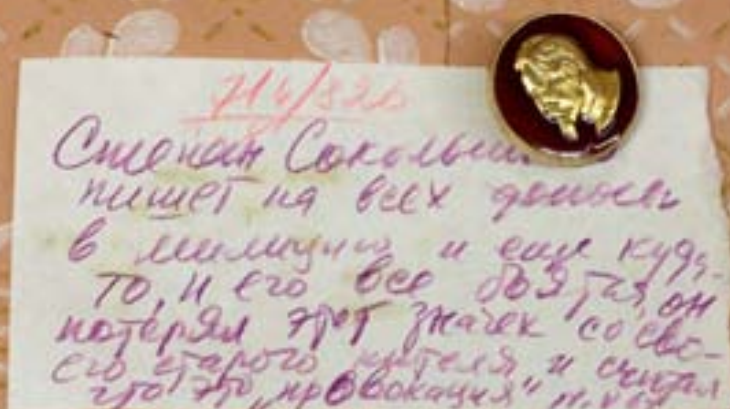 Степан Сокольни
пишет на всех доносы
в милицию и еще куда-
то, и его все боятся, он
потерял этот значек со сво-
его старого кителя, и считал
что это „провокация"